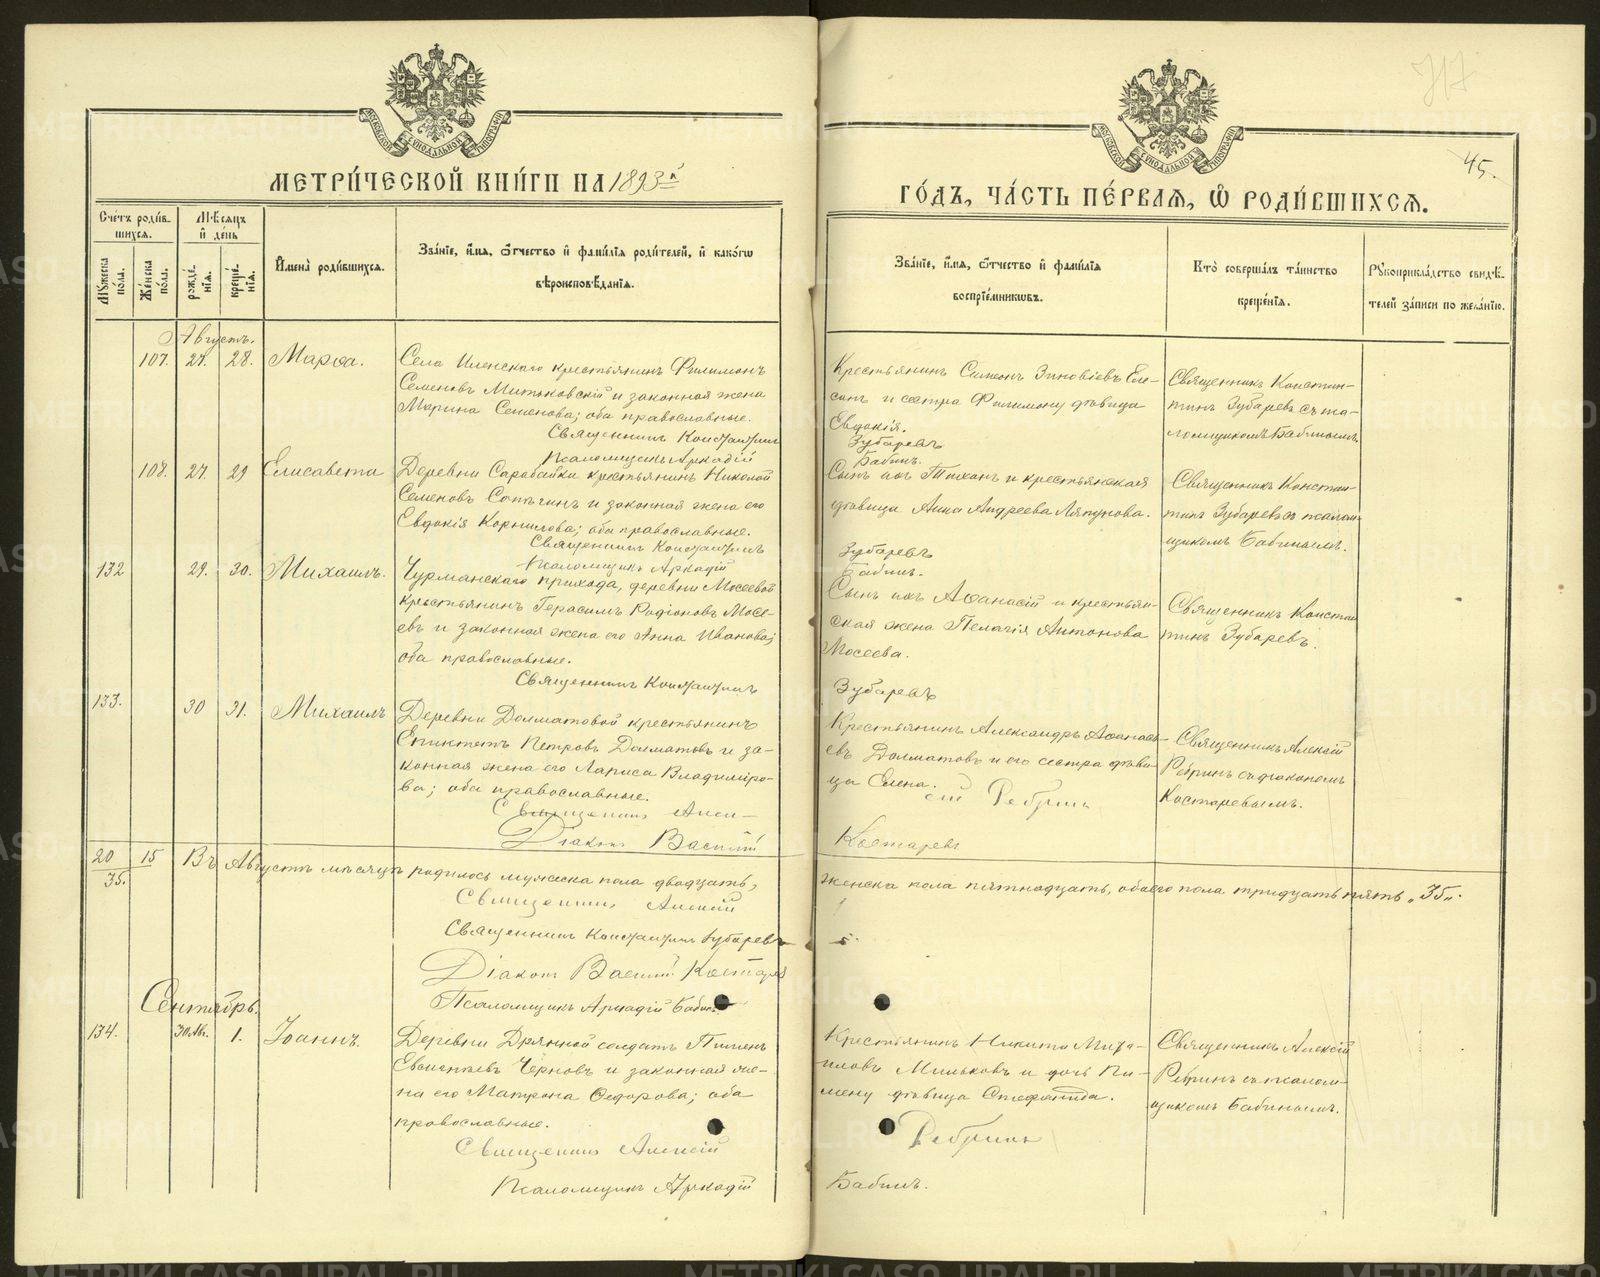 717
45.
МЕТРИЧЕСКОЙ КНИГИ НА 1893й
ГОДЪ, ЧАСТЬ ПЕРВАЯ, Ѡ РОДИВШИХСЯ.
Счетъ родившихся.
Мужеска пола.
Женска пола.
Мѣсяцъ и день
рожденія.
крещенія.
Имена родившихся.
Званіе, имя, отчество и фамилія родителей, и какогѡ
вѣроисповѣданія.
Званіе, имя, отчество и фамилія
воспріемникѡвъ.
Кто совершалъ таинство
крещенія.
Рукоприкладство свидѣ-
телей записи по желанію.
Августъ.
107. 27. 28. Марѳа.
Села Иленскаго крестьянинъ Филимонъ
Семеновъ Митьковскій и законная жена
Марина Семенова; оба православные.
Священникъ Константинъ
Псаломщикъ Аркадій
Крестьянинъ Симеонъ Зиновіевъ
и сестра Филимону дѣвица
Евдокія.
Зубаревъ
Бабинъ.
Священникъ Констан-
тинъ Зубаревъ съ пса-
ломщикомъ Бабинымъ.
108. 27. 29 Елисавета
Деревни Сарабайки крестьянинъ Николай
Семеновъ и законная жена его
Евдокія Корнилова; оба православные.
Священникъ Константинъ
Псаломщикъ Аркадій
Сынъ ихъ Тихонъ и крестьянская
дѣвица Анна Андреева Ляпунова.
Зубаревъ
Бабинъ.
Священникъ Констан-
тинъ Зубаревъ съ псалом-
щикомъ Бабинымъ.
132 29. 30. Михаилъ.
Чурманскаго прихода, деревни Мосеевой
крестьянинъ Герасимъ Родіоновъ Мосе-
евъ и законная жена его Анна Иванова;
оба православные.
Священникъ Константинъ
Сынъ ихъ Аѳанасій и крестьян-
ская жена Пелагія Антонова
Мосеева.
Зубаревъ
Священникъ Констан
тинъ Зубаревъ.
133. 30 31. Михаилъ
Деревни Долматовой крестьянинъ
Епиктетъ Петровъ Долматовъ и за-
конная жена его Лариса Владиміро-
ва; оба православные.
Священникъ Алек-
Діаконъ Василій
Крестьянинъ Александръ Аѳанась-
евъ Долматовъ и его сестра дѣви-
ца Елена.
сій Ребринъ
Костаревъ
Священникъ Алексій
Ребринъ съ діакономъ
Костаревымъ.
20 15
35.
Въ Августѣ мѣсяцѣ родилось мужеска пола двадцать,
женска пола пятнадцать, обоего пола тридцать пять „35„.
Священникъ Алексій
Священникъ Константинъ Зубаревъ
Діаконъ Василій Костарев
Псаломщикъ Аркадій Бабин
Сентябрь.
134. 30 Ав. 1. Іоаннъ.
Деревни Дрянной солдатъ Пименъ
Евсигнѣевъ Черновъ и законная же-
на его Матрона Ѳедорова; оба
православные.
Священникъ Алексій
Псаломщикъ Аркадій
Крестьянинъ Никита Миха-
иловъ Мильковъ и дочь Пи-
мену дѣвица Стефанида.
Ребринъ
Бабинъ.
Священникъ Алексій
Ребринъ съ псалом-
щикомъ Бабинымъ.